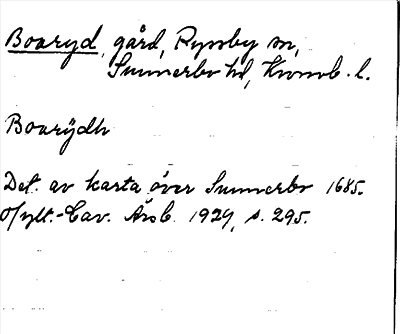 Boaryd, gård, Ryssby sn,
Sunnerbo hd, Kronob. l.
Boarÿdh
Det. av karta över Sunnerbo 1685.
Sylt.-Cav. Årsb. 1929, s. 295.